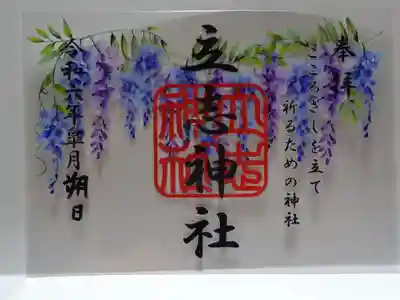 奉拝
こころざしを立て
祈るための神社
立志神社
立志神社
令和六年皐月朔日